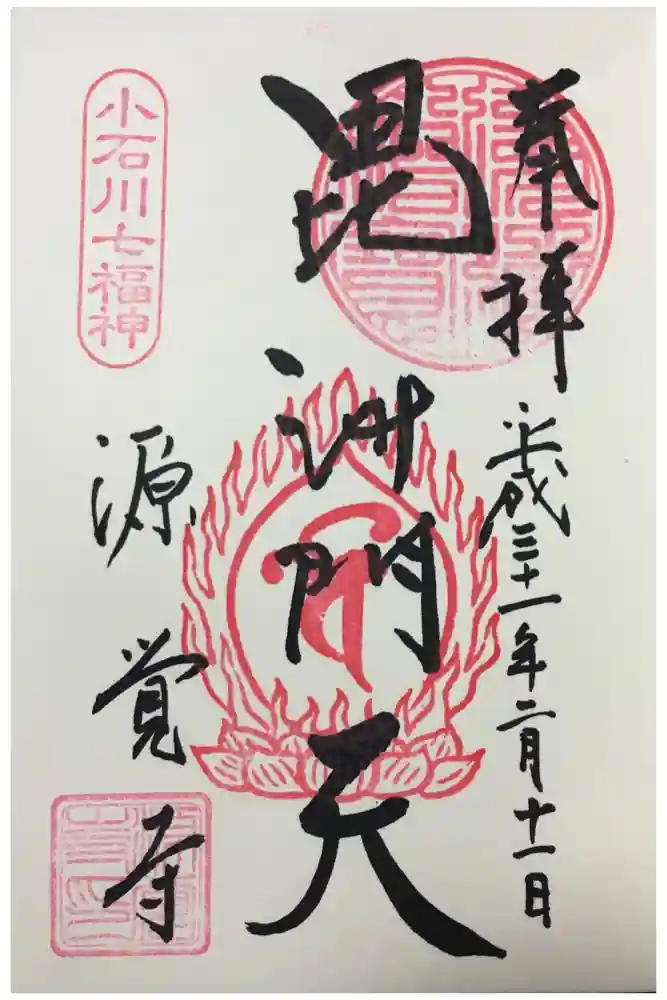 奉拝
平成三十一年二月十一日
毘沙門天
小石川七福神
源覚寺